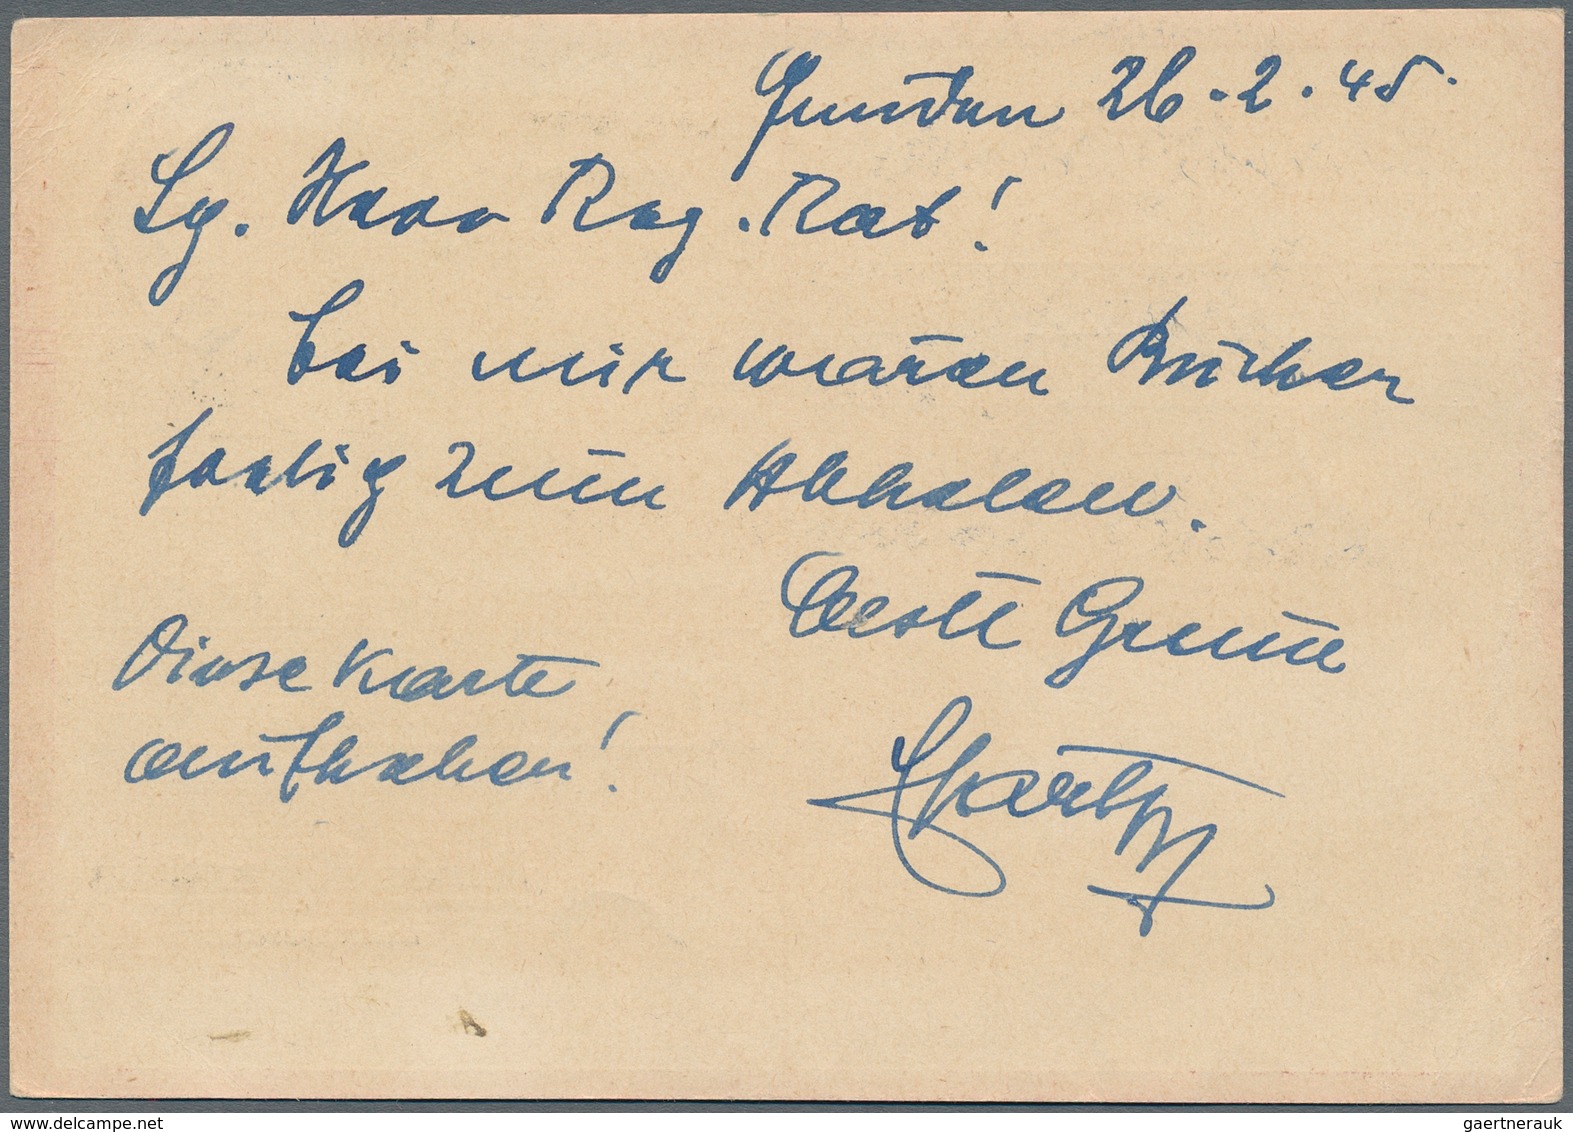 Gmunden 26.2.45.
Sg. Herr Reg.Rat!
bei mir wären Bücher
fertig zum Abholen.
Beste Grüße
Diese Karte
aufheben!
delcampe.net
gaertnerauk